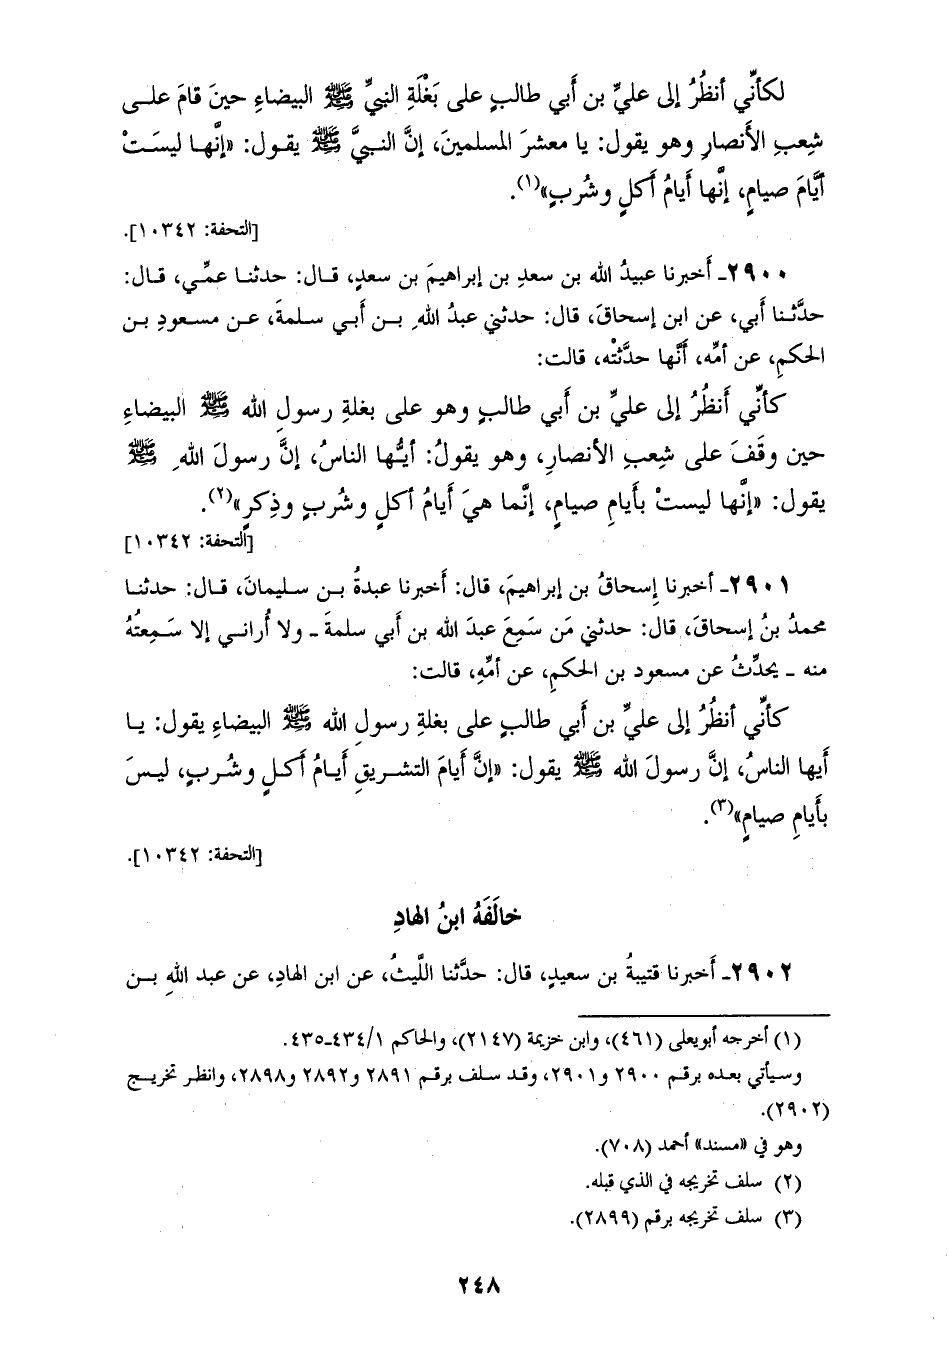 لكأنِّي أنظُرُ إلى عليِّ بن أَبي طالبٍ على بَغْلَةِ النبيِّ ﷺ البيضاءِ حينَ قامَ علـى
شِعبِ الأَنصارِ وهو يقول: يا معشرَ المسلمينَ، إنَّ النبيَّ ﷺ يقـول: «إنَّهـا ليسَـتْ
أيَّامَ صيامٍ، إنَّها أَيامُ أَكلٍ وشُربٍ»(١).
[التحفة: ١٠٣٤٢].
٢٩٠٠ـ أَخبرنا عبيدُ الله بن سعدِ بن إبراهيمَ بن سعدٍ، قـال: حدثنـا عمِّـي، قـال:
حدَّثـنا أَبي، عن ابن إسحاقَ، قال: حدثني عبدُ اللهِ بـن أَبي سـلمةَ، عـن مسـعودِ بـن
الحكمِ، عن أمِّه، أَنَّها حدَّثتْه، قالت:
كأنِّي أَنظُرُ إلى عليِّ بن أَبي طالبٍ وهو على بغلةِ رسولِ الله ﷺ البيضاءِ
حين وقَفَ على شِعبِ الأنصارِ، وهو يقولُ: أيـُّها الناسُ، إنَّ رسولَ اللهِ ﷺ
يقول: «إنَّها ليستْ بأَيامِ صيامٍ، إنَّما هيَ أَيامُ أكلٍ وشُربٍ وذِكرٍ»(٢).
[التحفة: ١٠٣٤٢]
٢٩٠١ـ أخبرنا إسحاقُ بن إبراهيمَ، قال: أَخبرنا عبدةُ بـن سـليمانَ، قـال: حدثنـا
محمدُ بنُ إسحاقَ، قال: حدثني مَن سَمِعَ عبدَ الله بن أَبي سلمةَ ـ ولا أُرانـي إلا سَـمِعتُهُ
منه ـ يحدِّثُ عن مسعود بن الحكمِ، عن أمِّهِ، قالت:
كأنِّي أنظُرُ إلى عليِّ بن أَبي طالبٍ على بغلةِ رسولِ الله ﷺ البيضاءِ يقول: يـا
أَيها الناسُ، إنَّ رسولَ الله ﷺ يقول: «إنَّ أَيامَ التشريقِ أَيـامُ أَكـلٍ وشُربٍ، ليسَ
بأَيامِ صيامٍ»(٣).
[التحفة: ١٠٣٤٢].
خالَفَهُ ابنُ الهادِ
٢٩٠٢ـ أَخبرنا قتيبةُ بن سعيدٍ، قال: حدَّثنا اللَّيثُ، عن ابن الهادِ، عن عبد اللهِ بـن
(١) أخرجه أبويعلى (٤٦١)، وابن خزيمة (٢١٤٧)، والحاكم ٤٣٤/١ـ٤٣٥.
وسيأتي بعده برقم ٢٩٠٠ و٢٩٠١، وقد سلف برقم ٢٨٩١ و٢٨٩٢ و٢٨٩٨، وانظر تخريـج
(٢٩٠٢).
وهو في «مسند» أحمد (٧٠٨).
(٢) سلف تخريجه في الذي قبله.
(٣) سلف تخريجه برقم (٢٨٩٩).
٢٤٨